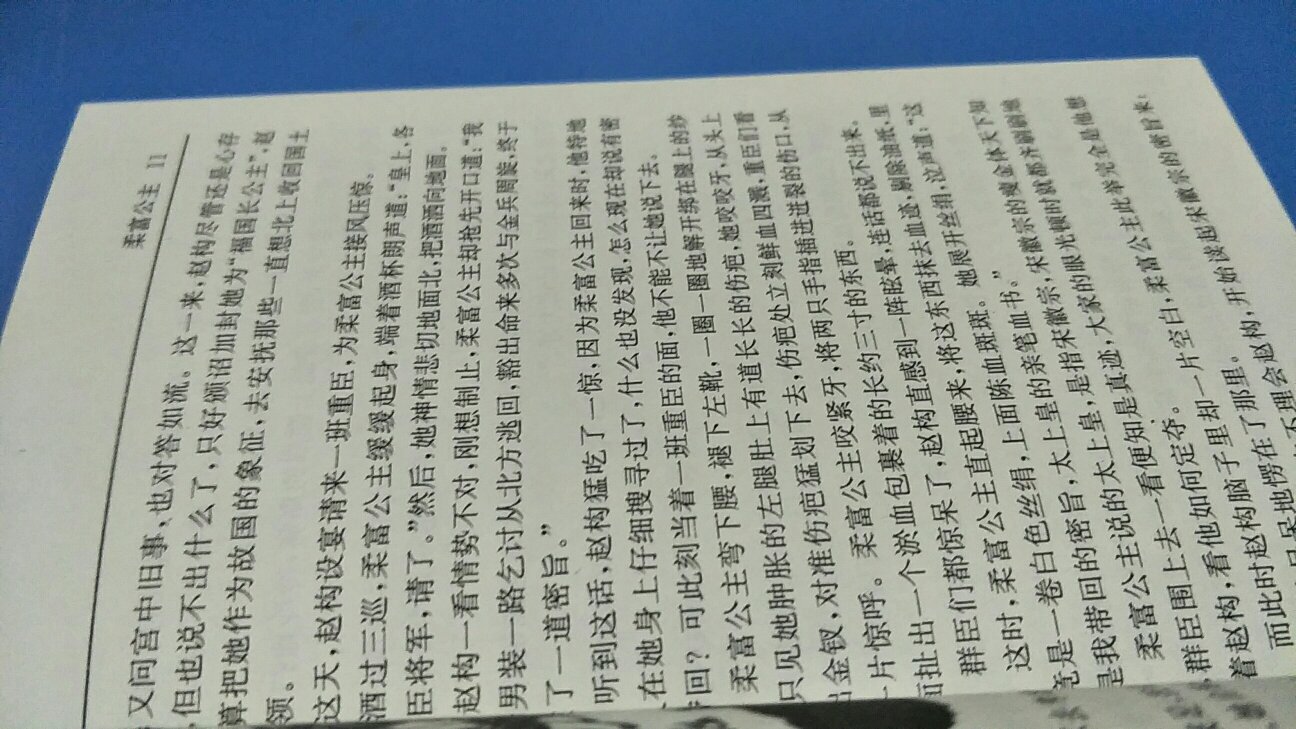 柔富公主 11
又问宫中旧事,也对答如流。这一来,赵构尽管还是心存
,但也说不出什么了,只好颁诏加封她为“福国长公主”,赵
算把她作为故国的象征,去安抚那些一直想北上收回国土
领。
这天,赵构设宴请来一班重臣,为柔富公主接风压惊。
酒过三巡,柔富公主缓缓起身,端着酒杯朗声道:“皇上,各
臣将军,请了。”然后,她神情悲切地面北,把酒洒向地面。
赵构一看情势不对,刚想制止,柔富公主却抢先开口道:“我
男装一路乞讨从北方逃回,豁出命来多次与金兵周旋,终于
了一道密旨。”
听到这话,赵构猛吃了一惊,因为柔富公主回来时,他特地
在她身上仔细搜寻过了,什么也没发现,怎么现在却说有密
回?可此刻当着一班重臣的面,他不能不让她说下去。
柔富公主弯下腰,褪下左靴,一圈一圈地解开绑在腿上的纱
只见她肿胀的左腿肚上有道长长的伤疤,她咬咬牙,从头上
出金钗,对准伤疤猛划下去,伤疤处立刻鲜血四溅,重臣们看
一片惊呼。柔富公主咬紧牙,将两只手指插进迸裂的伤口,从
面扯出一个淤血包裹着的长约三寸的东西。
群臣们都惊呆了,赵构直感到一阵眩晕,连话都说不出来。
这时,柔富公主直起腰来,将这东西抹去血迹,剔除油纸,里
竟是一卷白色丝绢,上面陈血斑斑。她展开丝绢,泣声道:“这
是我带回的密旨,太上皇的亲笔血书。”
柔富公主说的太上皇,是指宋徽宗,宋徽宗的瘦金体天下知
,群臣围上去一看便知是真迹,大家的眼光顿时就都齐刷刷地
着赵构,看他如何定夺。
而此时赵构脑子里却一片空白,柔富公主此举完全是他想
呆呆地愣在了那里。
不理会赵构,开始读起宋徽宗的密旨来: